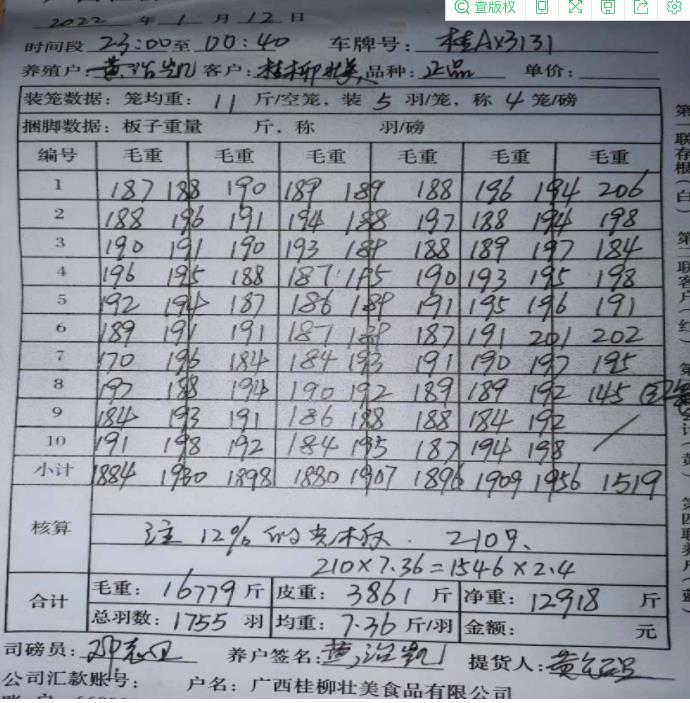 查版权
2022 年 1 月 12 日
时间段 23:00至 00:40 车牌号: 桂AX3131
养殖户: 黄浩凯 客户: 桂柳壮美 品种: 正品 单价:
装笼数据: 笼均重: 11 斤/空笼, 装 5 羽/笼, 称 4 笼/磅
捆脚数据: 板子重量 斤, 称 羽/磅
编号 毛重 毛重 毛重 毛重 毛重
1 187 188 190 189 189 188 196 194 206
2 188 196 191 194 188 197 188 194 198
3 190 191 190 193 189 188 189 197 184
4 196 195 188 187 195 190 193 195 198
5 192 194 187 186 189 191 195 196 191
6 189 191 191 187 189 187 191 201 202
7 170 196 184 184 193 191 190 197 195
8 197 188 194 190 192 189 189 192 145
9 184 193 191 186 188 188 184 192
10 191 198 192 184 195 187 194 198
小计 1884 1930 1898 1880 1907 1896 1909 1956 1519
核算
注 12% 的 210只
210×7.36=1546×2.4
合计
毛重: 16779 斤 皮重: 3861 斤 净重: 12918 斤
总羽数: 1755 羽 均重: 7.36 斤/羽 金额: 元
司磅员: 养户签名: 黄浩凯 提货人:
公司汇款账号: 户名: 广西桂柳壮美食品有限公司
第一联存根(白)
第二联客户(红)